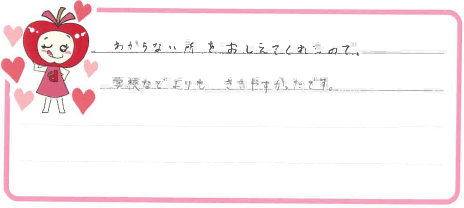 わからない所をおしえてくれるので、
学校などよりも ききやすかったです。